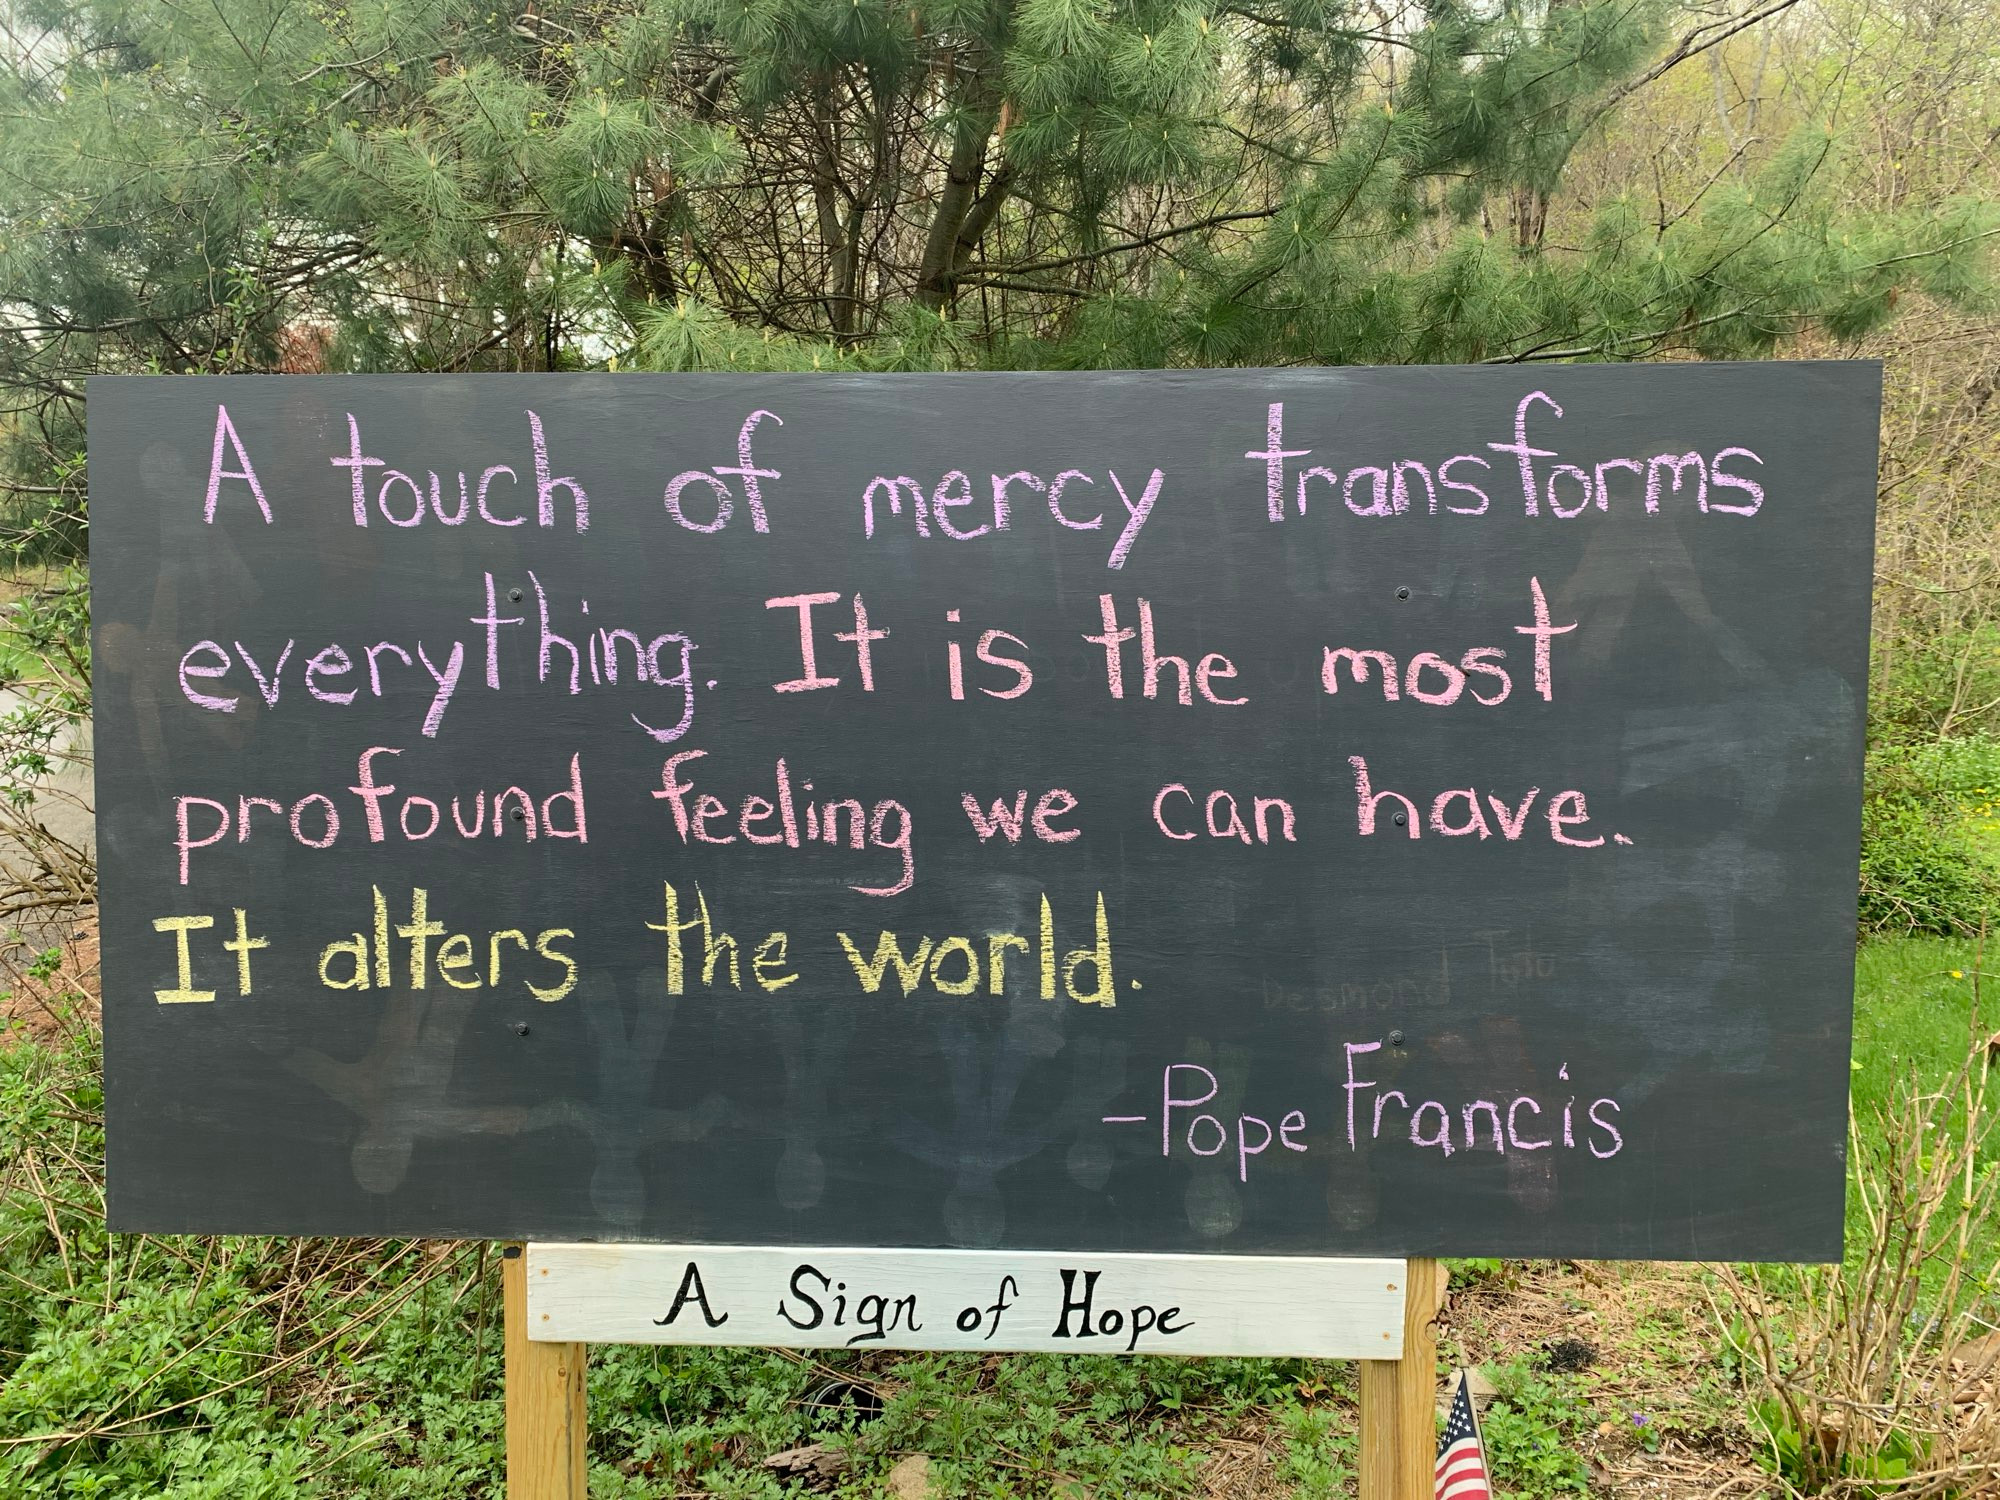 A touch of mercy transforms
everything. It is the most
profound feeling we can have.
It alters the world.
Desmond Tutu
-Pope Francis
A Sign of Hope